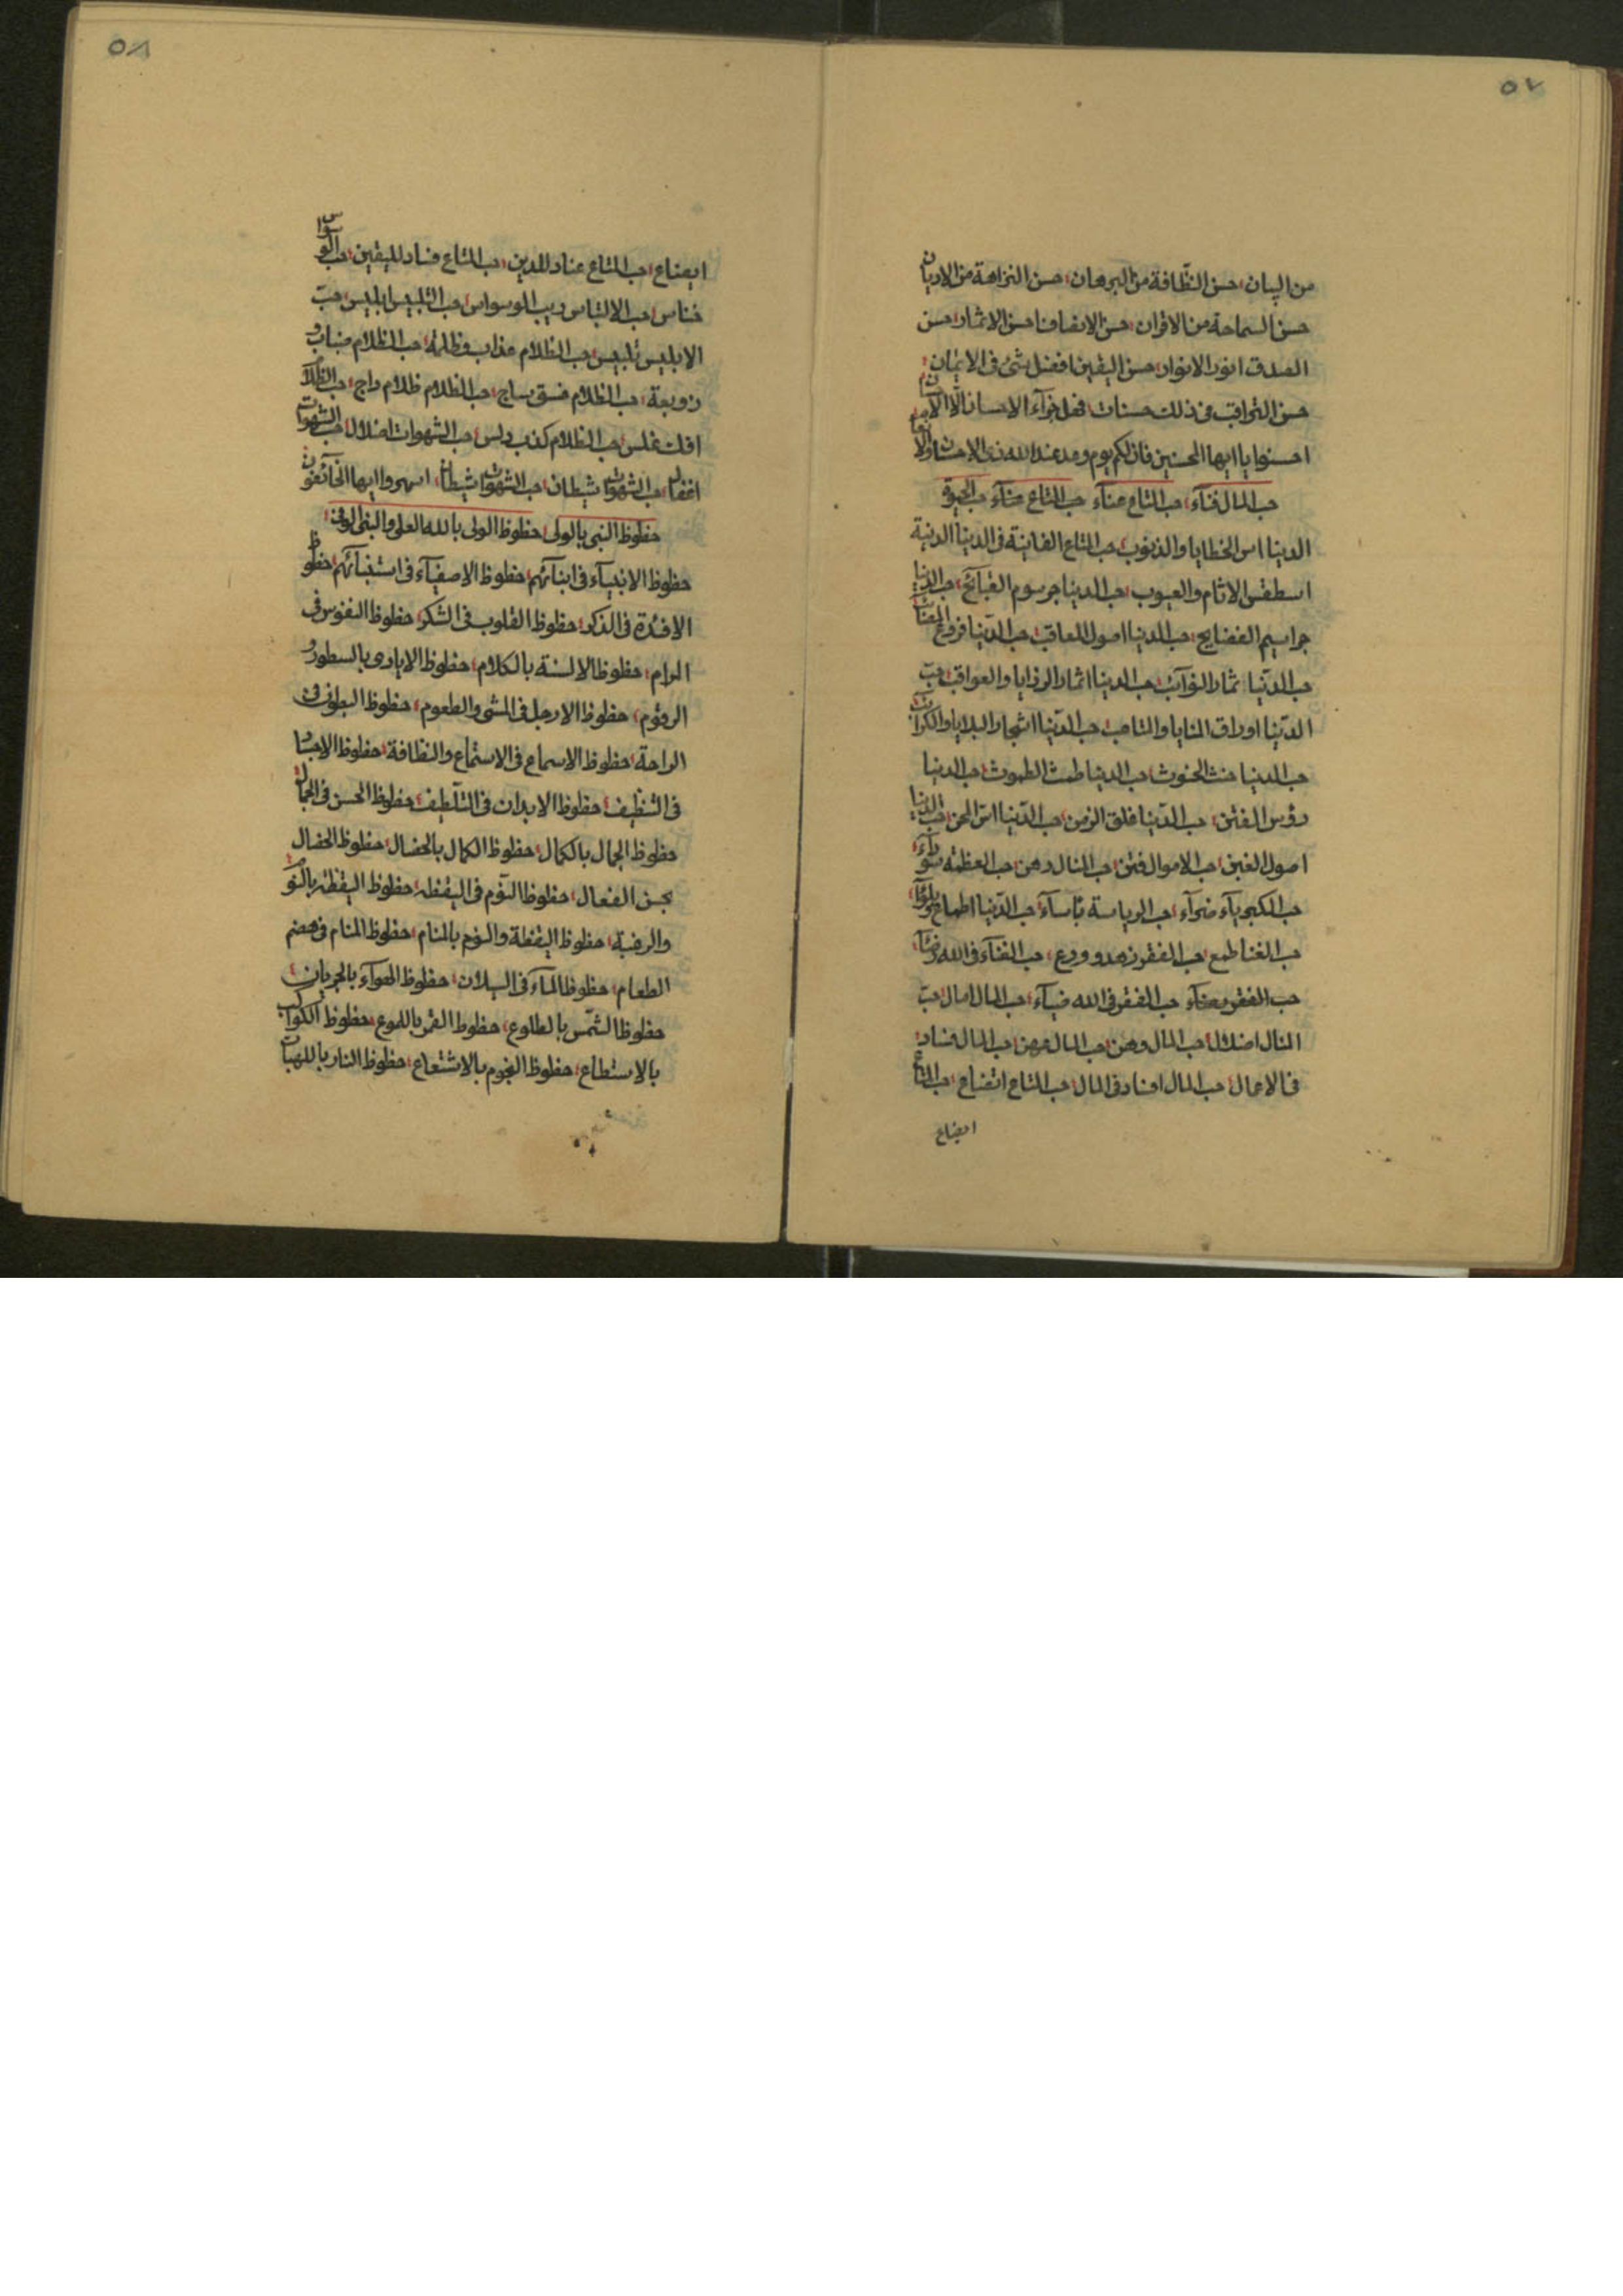 ٥٧
من البيان حسن النظافة من البرهان حسن النزاهة من الاديان
حسن السماحة من الاقران حسن الانصاف احسن الاثار حسن
الصدق انور الانوار حسن اليقين افضل شئ فى الايمان
حسن فى ذلك حسنات فهل جزآء الاحسان الّا الاحسان
احسنوا يا ايها المحسنين فان لكم يوم وعد عند الله ذى الاحسان
حب المال فنآء حب المتاع عنآء حب المتاع حب الحيوة
الدنيا اس الخطايا والذنوب حب المتاع الفانية فى الدنيا الدنية
اسطقس الاثام والعيوب حب الدنيا جرسوم القبآئح حب الدنيا
جراسيم الفضايح حب الدنيا اصول المعاقب حب الدّنيا فروع
حب الدّنيا ثمار النوآئب حب الدنيا اثمار الرزايا والعواقب حبّ
الدّنيا اوراق المنايا والمتاعب حب الدّنيا اشجار البلايا والكربات
حب الدنيا حنث حب الدنيا طمث حب الدنيا
رؤس الفتن حب الدّنيا حب الدّنيا اسّ المحن حب الدنيا
اصول الغبن حب الاموال فتن حب المنال وهن حب العظمة
حب الكبريآء ضرآء حب الرياسة بأسآء حب الدّنيا اطماع
حب الغنا طمع حب الفقر زهد وورع حب الغنآء فى الله
حب الفقر حب الفقر فى الله ضيآء حب المال امال حبّ
المنال اضلال حب المال وهن حب المال حب المال فساد
فى الاعمال حب المال افساد فى المال حب المتاع اتضاع حب المتاع
ايضاع
٥٨
ايضاع حب المتاع عناد للدين حب المتاع فساد لليقين حب الوسواس
خناس حب الالتباس ريب الوسواس حب التلبيس ابليس حبّ
الابليس تلبيس حب الظلام عذاب وظلمة حب الظلام
زوبعة حب الظلام غسق ساج حب الظلام ظلام داج حب الظلام
افك غلس حب الظلام كذب دلس حب الشهوات اضلال حب الشهوات
اغفال حب الشهوات شيطان حب الشهوات اسهروا ايها الخآئفون
حظوظ النبى بالولى حظوظ الولى بالله العلى والنبى الوفى
حظوظ الانبيآء فى انبآئهم حظوظ الاصفيآء فى حظوظ
الافئدة فى الذكر حظوظ القلوب فى الشكر حظوظ النفوس فى
المرام حظوظ الالسنة بالكلام حظوظ الايادى بالسطور و
الرقوم حظوظ الارجل فى المشى والطعوم حظوظ البطون فى
الراحة حظوظ الاسماع فى الاستماع والنظافة حظوظ الاجساد
فى التنظيف حظوظ الابدان فى التلطيف حظوظ الحسن فى الجمال
حظوظ الجمال بالكمال حظوظ الكمال بالخصال حظوظ الخصال
بحسن الفعال حظوظ النّوم فى اليقظة حظوظ اليقظة بالنوم
والرغبة حظوظ اليقظة والنوم بالمنام حظوظ المنام فى هضم
الطعام حظوظ المآء فى السيلان حظوظ الهوآء بالجريان
حظوظ الشّمس بالطلوع حظوظ القمر باللموع حظوظ الكواكب
بالاستطاع حظوظ النجوم بالاشتعاع حظوظ النار باللهبات